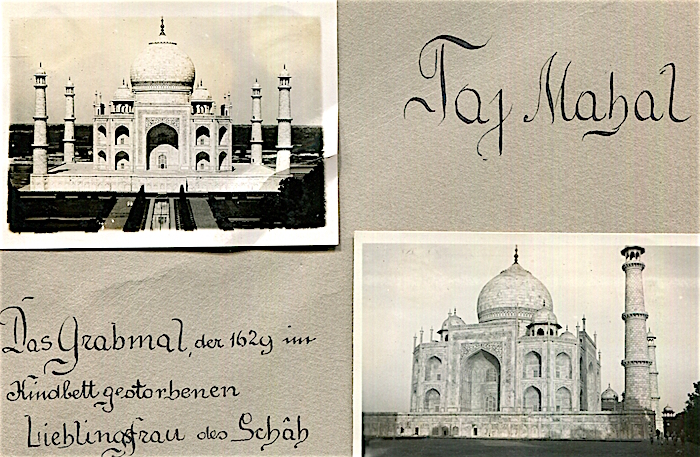 Taj Mahal
Das Grabmal, der 1629 im
Kindbett gestorbenen
Lieblingsfrau des Schâh